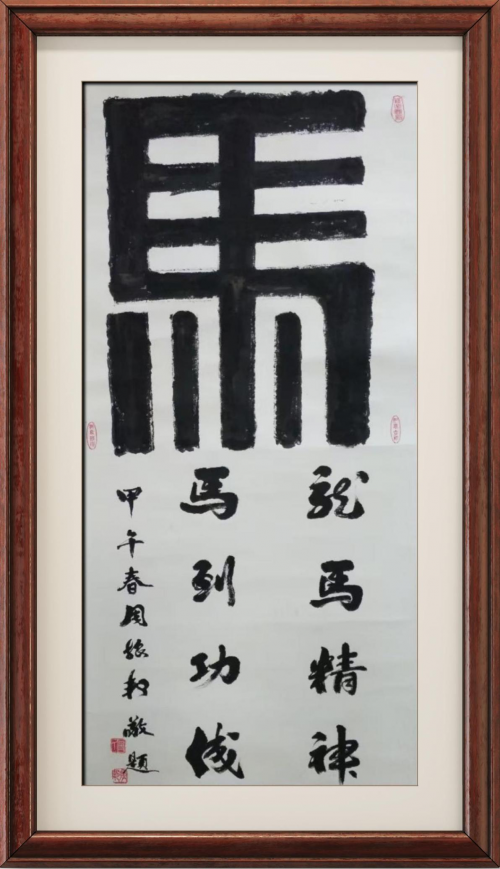 馬
龍馬精神
馬到功成
甲午春周敬題